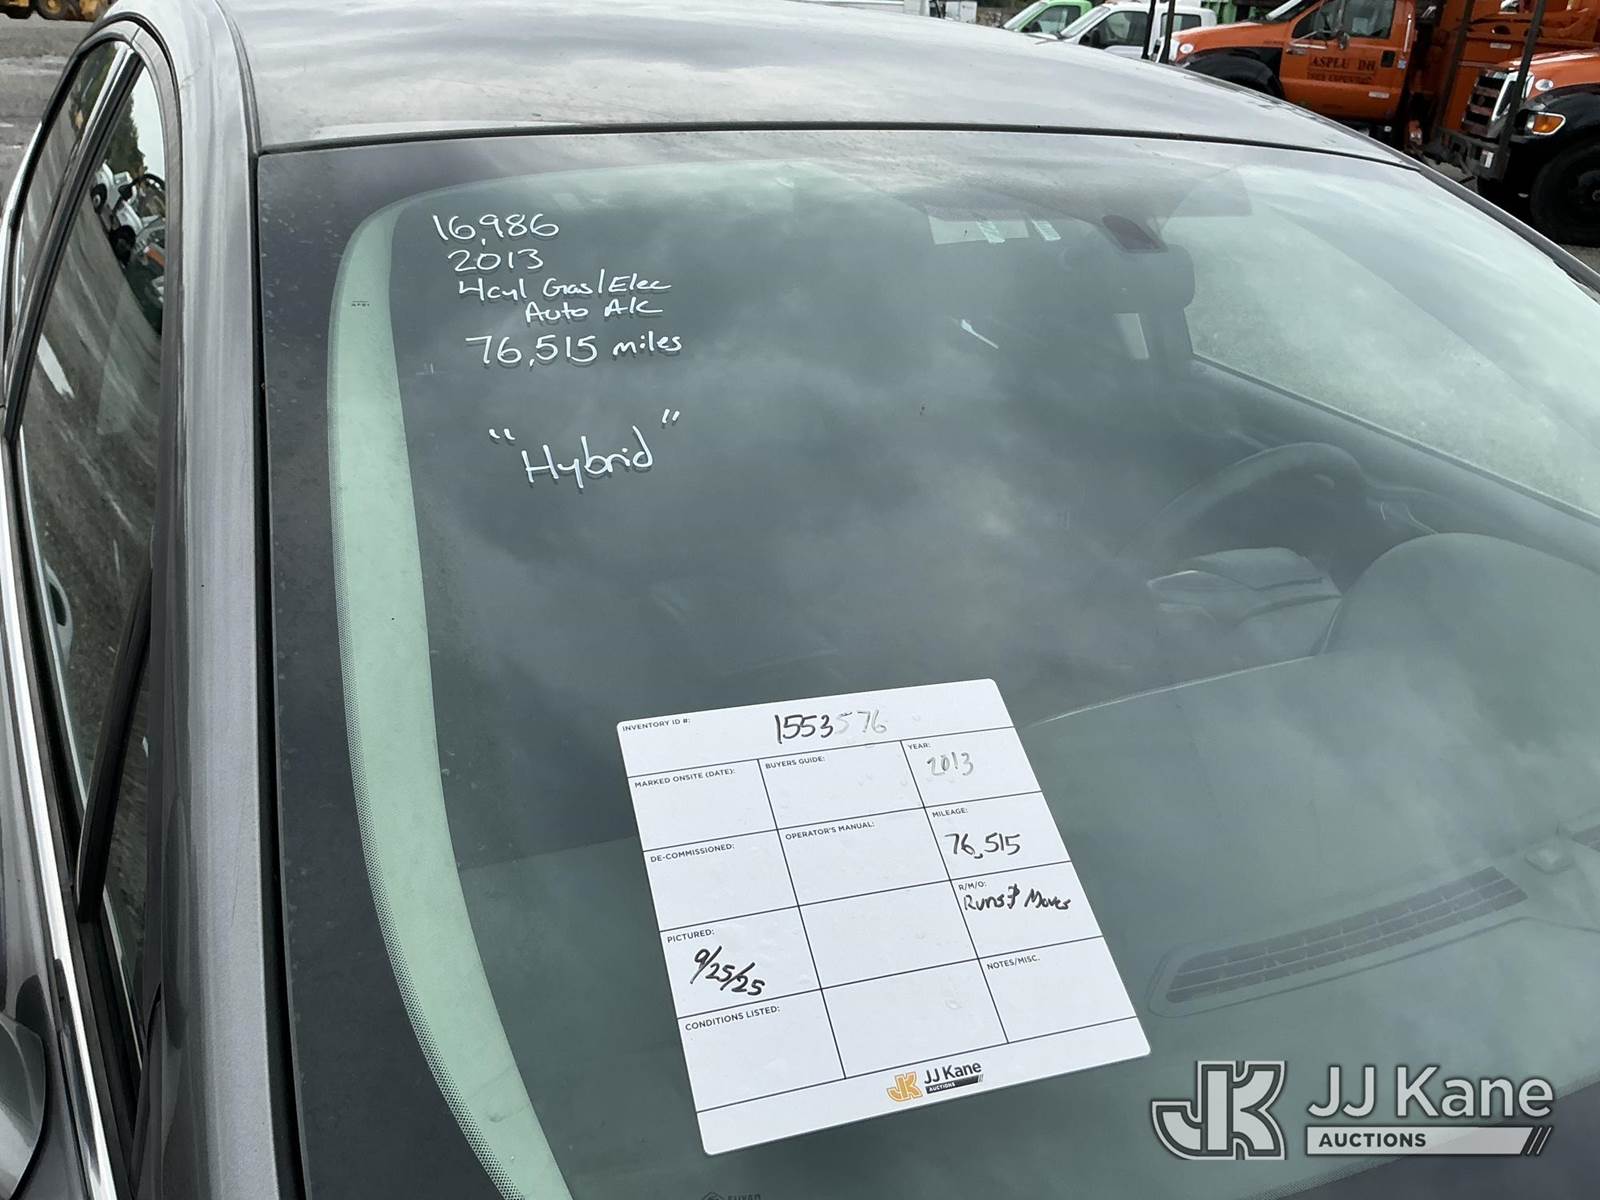 ASPLUNDH
16,986
2013
4cyl Gas/Elec
Auto A/C
76,515 miles
"Hybrid"
INVENTORY ID #: 1553576
MARKED ONSITE (DATE):
BUYERS GUIDE:
YEAR:
2013
DE-COMMISSIONED:
OPERATOR'S MANUAL:
MILEAGE:
76,515
PICTURED:
9/25/25
R/M/O:
Runs & Moves
CONDITIONS LISTED:
NOTES/MISC.
JK JJ Kane
AUCTIONS
JK JJ Kane
AUCTIONS